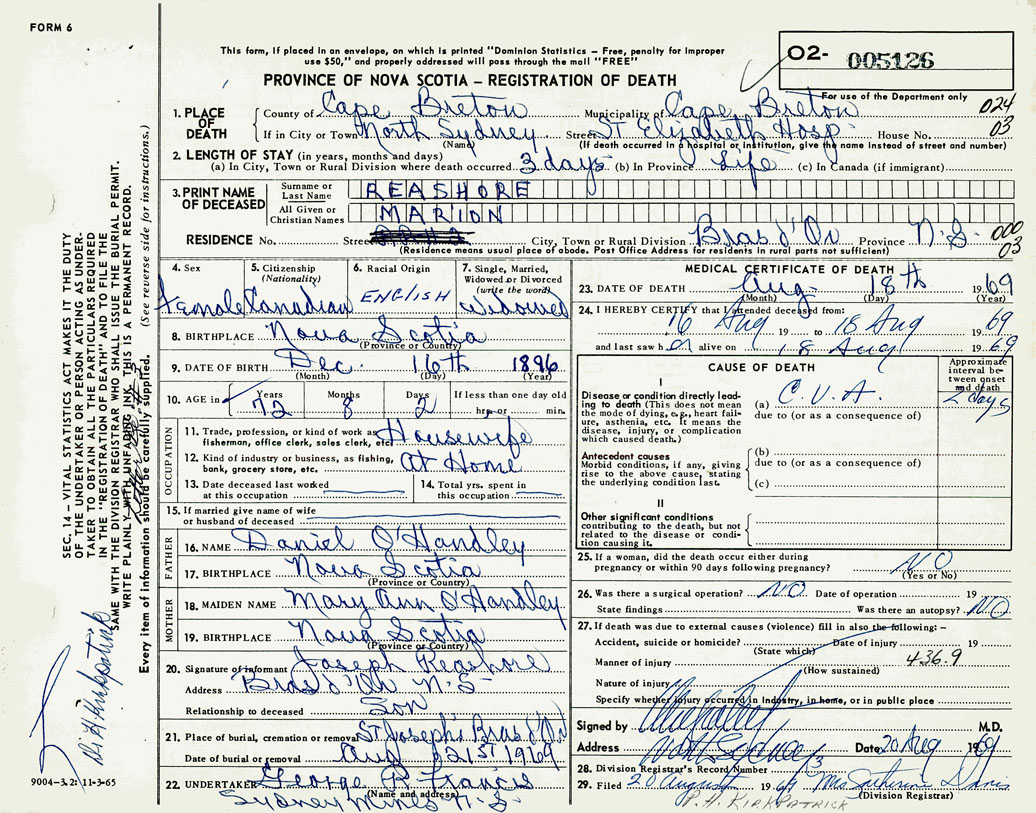 FORM 6
This form, if placed in an envelope, on which is printed "Dominion Statistics – Free, penalty for improper
use $50," and properly addressed will pass through the mail "FREE"
PROVINCE OF NOVA SCOTIA – REGISTRATION OF DEATH
O2- 005126
For use of the Department only
024
03
1. PLACE OF DEATH
County of Cape Breton Municipality of Cape Breton
If in City or Town North Sydney Street St Elizabeth Hosp. House No.
(Name) (If death occurred in a hospital or institution, give the name instead of street and number)
2. LENGTH OF STAY (in years, months and days)
(a) In City, Town or Rural Division where death occurred 3 days (b) In Province Life (c) In Canada (if immigrant)
3. PRINT NAME OF DECEASED
Surname or Last Name REASHORE
All Given or Christian Names MARION
RESIDENCE No. Street City, Town or Rural Division Bras d'Or Province N.S.
000
03
(Residence means usual place of abode. Post Office Address for residents in rural parts not sufficient)
4. Sex
Female
5. Citizenship
(Nationality)
Canadian
6. Racial Origin
ENGLISH
7. Single, Married,
Widowed or Divorced
(write the word)
Widowed
8. BIRTHPLACE Nova Scotia
(Province or Country)
9. DATE OF BIRTH Dec. 16th 1896
(Month) (Day) (Year)
10. AGE in Years Months Days If less than one day old
72 8 2 hrs. or min.
OCCUPATION
11. Trade, profession, or kind of work as Housewife
fisherman, office clerk, sales clerk, etc.
12. Kind of industry or business, as fishing, At Home
bank, grocery store, etc.
13. Date deceased last worked
at this occupation
14. Total yrs. spent in
this occupation
15. If married give name of wife
or husband of deceased
FATHER
16. NAME Daniel O'Handley
17. BIRTHPLACE Nova Scotia
(Province or Country)
MOTHER
18. MAIDEN NAME Mary Ann O'Handley
19. BIRTHPLACE Nova Scotia
(Province or Country)
20. Signature of informant Joseph Reashore
Address Bras d'Or N.S.
Relationship to deceased Son
21. Place of burial, cremation or removal St Joseph's Bras d'Or
Date of burial or removal Aug 21st 1969
22. UNDERTAKER George R. Francis
(Name and address)
Sydney Mines N.S.
MEDICAL CERTIFICATE OF DEATH
23. DATE OF DEATH Aug. 18th 1969
(Month) (Day) (Year)
24. I HEREBY CERTIFY that I attended deceased from:
16 Aug 19 to 18 Aug 1969
and last saw her alive on 18 Aug 1969
CAUSE OF DEATH
Approximate
interval be-
tween onset
and death
I
Disease or condition directly lead-
ing to death (This does not mean
the mode of dying, e.g., heart fail-
ure, asthenia, etc. It means the
disease, injury, or complication
which caused death.)
(a) C.V.A. 2 days
due to (or as a consequence of)
Antecedent causes
Morbid conditions, if any, giving
rise to the above cause, stating
the underlying condition last.
(b)
due to (or as a consequence of)
(c)
II
Other significant conditions
contributing to the death, but not
related to the disease or condi-
tion causing it.
25. If a woman, did the death occur either during
pregnancy or within 90 days following pregnancy? NO
(Yes or No)
26. Was there a surgical operation? NO. Date of operation 19
State findings Was there an autopsy? NO.
27. If death was due to external causes (violence) fill in also the following: –
Accident, suicide or homicide? Date of injury 19
(State which)
Manner of injury 436.9
(How sustained)
Nature of injury
Specify whether injury occurred in industry, in home, or in public place
Signed by M.D.
Address North Sydney Date 20 Aug 1969
28. Division Registrar's Record Number
29. Filed August 1969 Mrs
(Division Registrar)
P. H. KIRKPATRICK
SEC. 14 – VITAL STATISTICS ACT MAKES IT THE DUTY
OF THE UNDERTAKER OR PERSON ACTING AS UNDER-
TAKER TO OBTAIN ALL THE PARTICULARS REQUIRED
IN THE "REGISTRATION OF DEATH" AND TO FILE THE
SAME WITH THE DIVISION REGISTRAR WHO SHALL ISSUE THE BURIAL PERMIT.
WRITE PLAINLY WITH UNFADING INK. THIS IS A PERMANENT RECORD.
Every item of information should be carefully supplied. (See reverse side for instructions.)
Kirkpatrick
9004-3.2: 11-3-65